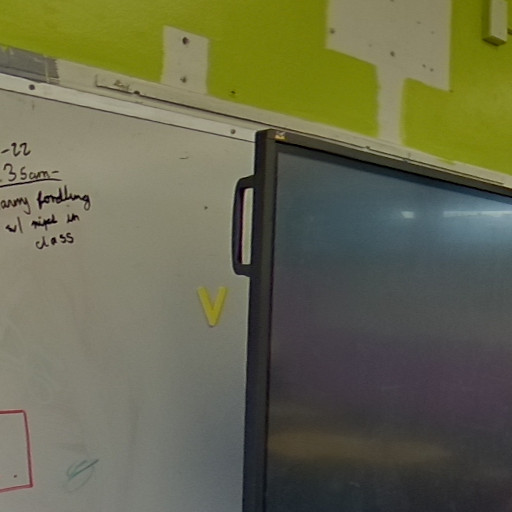 -22
:35am-
army fondling
w/ nipel in
class
V